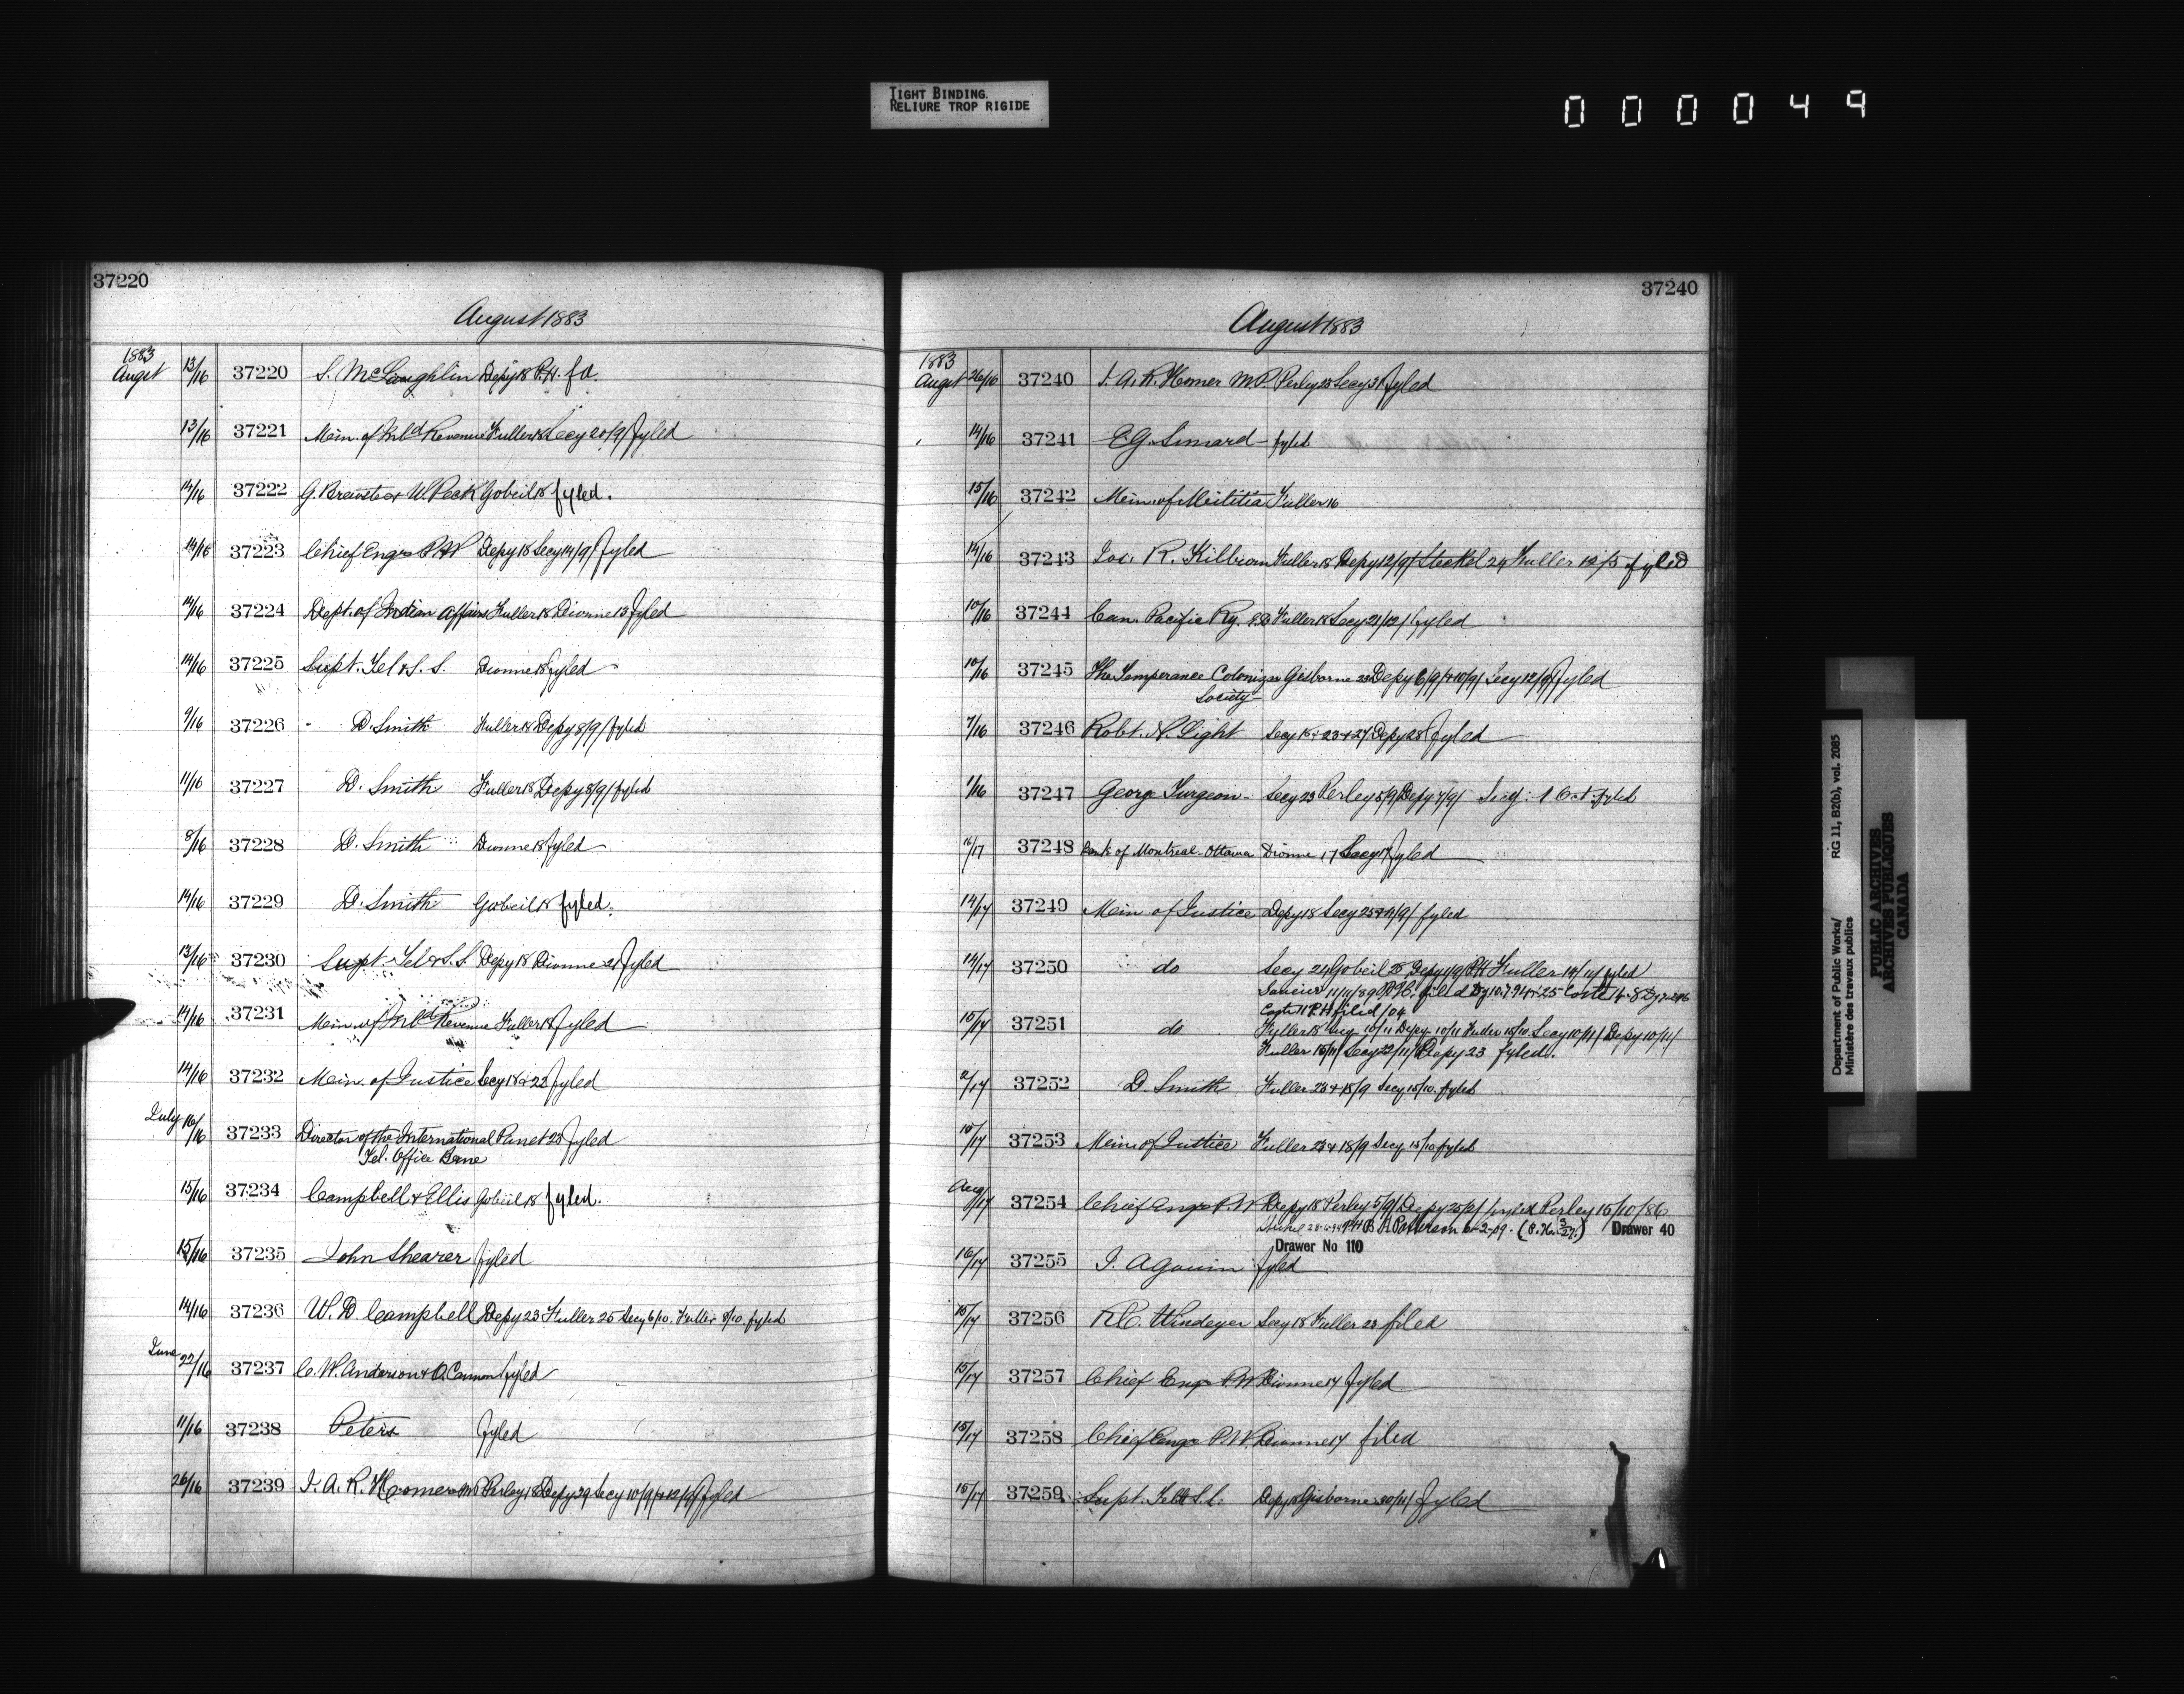 TIGHT BINDING
RELIURE TROP RIGIDE
000049
37220
August 1883
1883
Augst 13/16 37220 S. McLaughlin Depy 18 P.H. fd.
13/16 37221 Min. of Inld Revenue Fuller 18 Secy 20/9/ fyled
14/16 37222 G. Brewster & W. Peck Gobeil 18 fyled.
14/16 37223 Chief Engr P.W Depy 18 Secy 14/9/ fyled
14/16 37224 Dept. of Indian Affairs Fuller 18 Dionne 13 fyled
14/16 37225 Supt. Tel & S. S. Dionne 18 fyled
9/16 37226 D. Smith Fuller 18 Depy 8/9/ fyled
11/16 37227 D. Smith Fuller 18 Depy 8/9/ fyled
8/16 37228 D. Smith Dionne 18 fyled
14/16 37229 D. Smith Gobeil 18 fyled.
13/16 37230 Supt. Tel & S.S. Depy 18 Dionne 21 fyled
14/16 37231 Min. of Inld Revenue Fuller 18 fyled
14/16 37232 Min. of Justice Secy 18 & 22 fyled
July 16/16 37233 Director of the International Panet 23 fyled
Tel. Office Berne
15/16 37234 Campbell & Ellis Gobeil 18 fyled.
15/16 37235 John Shearer fyled
14/16 37236 W. D. Campbell Depy 23 Fuller 25 Secy 6/10. Fuller 8/10. fyled
June 22/16 37237 C. W. Anderson & O. Cannon fyled
11/16 37238 Peters fyled
26/16 37239 J. A. R. Homer MP Perley 18 Depy 29 Secy 10/9/ & 12/9/ fyled
37240
August 1883
1883
Augst 26/16 37240 J. A. R. Homer M.P. Perley 23 Secy 31 fyled
14/16 37241 E. G. Simard fyled
15/16 37242 Min. of Militia Fuller 16
14/16 37243 Jos. R. Kilburn Fuller 18 Depy 12/9/ Steckel 24 Fuller 12/5 fyled
10/16 37244 Can. Pacific Ry. Fuller 18 Secy 21/12/ fyled
10/16 37245 The Temperance Colonizn Gisborne 23 Depy 6/9/ & 10/9/ Secy 12/9/ fyled
Society
7/16 37246 Robt. N. Light Secy 18 & 23 & 27 Depy 28 fyled
1/16 37247 George Turgeon Secy 23 Perley 5/9/ Depy 7/9/ Secy: 1 Oct. fyled
16/17 37248 Bank of Montreal Ottawa Dionne 17 Secy 17 fyled
14/17 37249 Min of Justice Depy 18 Secy 25 fyled
14/17 37250 do Secy 24 Gobeil 28 Depy P.H Fuller fyled
11/11/89 P.H. filed Coste
Coste 11 P.H filed /04
15/17 37251 do Fuller 18 Secy 10/11 Depy 10/11 Fuller Secy 10/11/ Depy 10/11/
Fuller 15/11/ Secy 22/11/ Depy 23 fyled.
2/17 37252 D. Smith Fuller 23 & 18/9 Secy 15/10. fyled
15/17 37253 Min. of Justice Fuller 23 & 18/9 Secy 15/10 fyled
Aug /17 37254 Chief Engr P.W Depy 18 Perley 5/9/ Depy fyled Perley 15/10/86
Patterson 6-2-09. Drawer 40
Drawer No 110
16/17 37255 J. A Gouin fyled
15/17 37256 R.C. Windeyer Secy 18 Fuller 23 filed
15/17 37257 Chief Engr P.W Dionne 17 fyled
15/17 37258 Chief Engr P.W. Dionne 17 filed
15/17 37259 Supt. Tel & S.S. Depy 18 Gisborne fyled
Department of Public Works/ RG 11, B2(b), vol. 2085
Ministère des travaux publics
PUBLIC ARCHIVES
ARCHIVES PUBLIQUES
CANADA